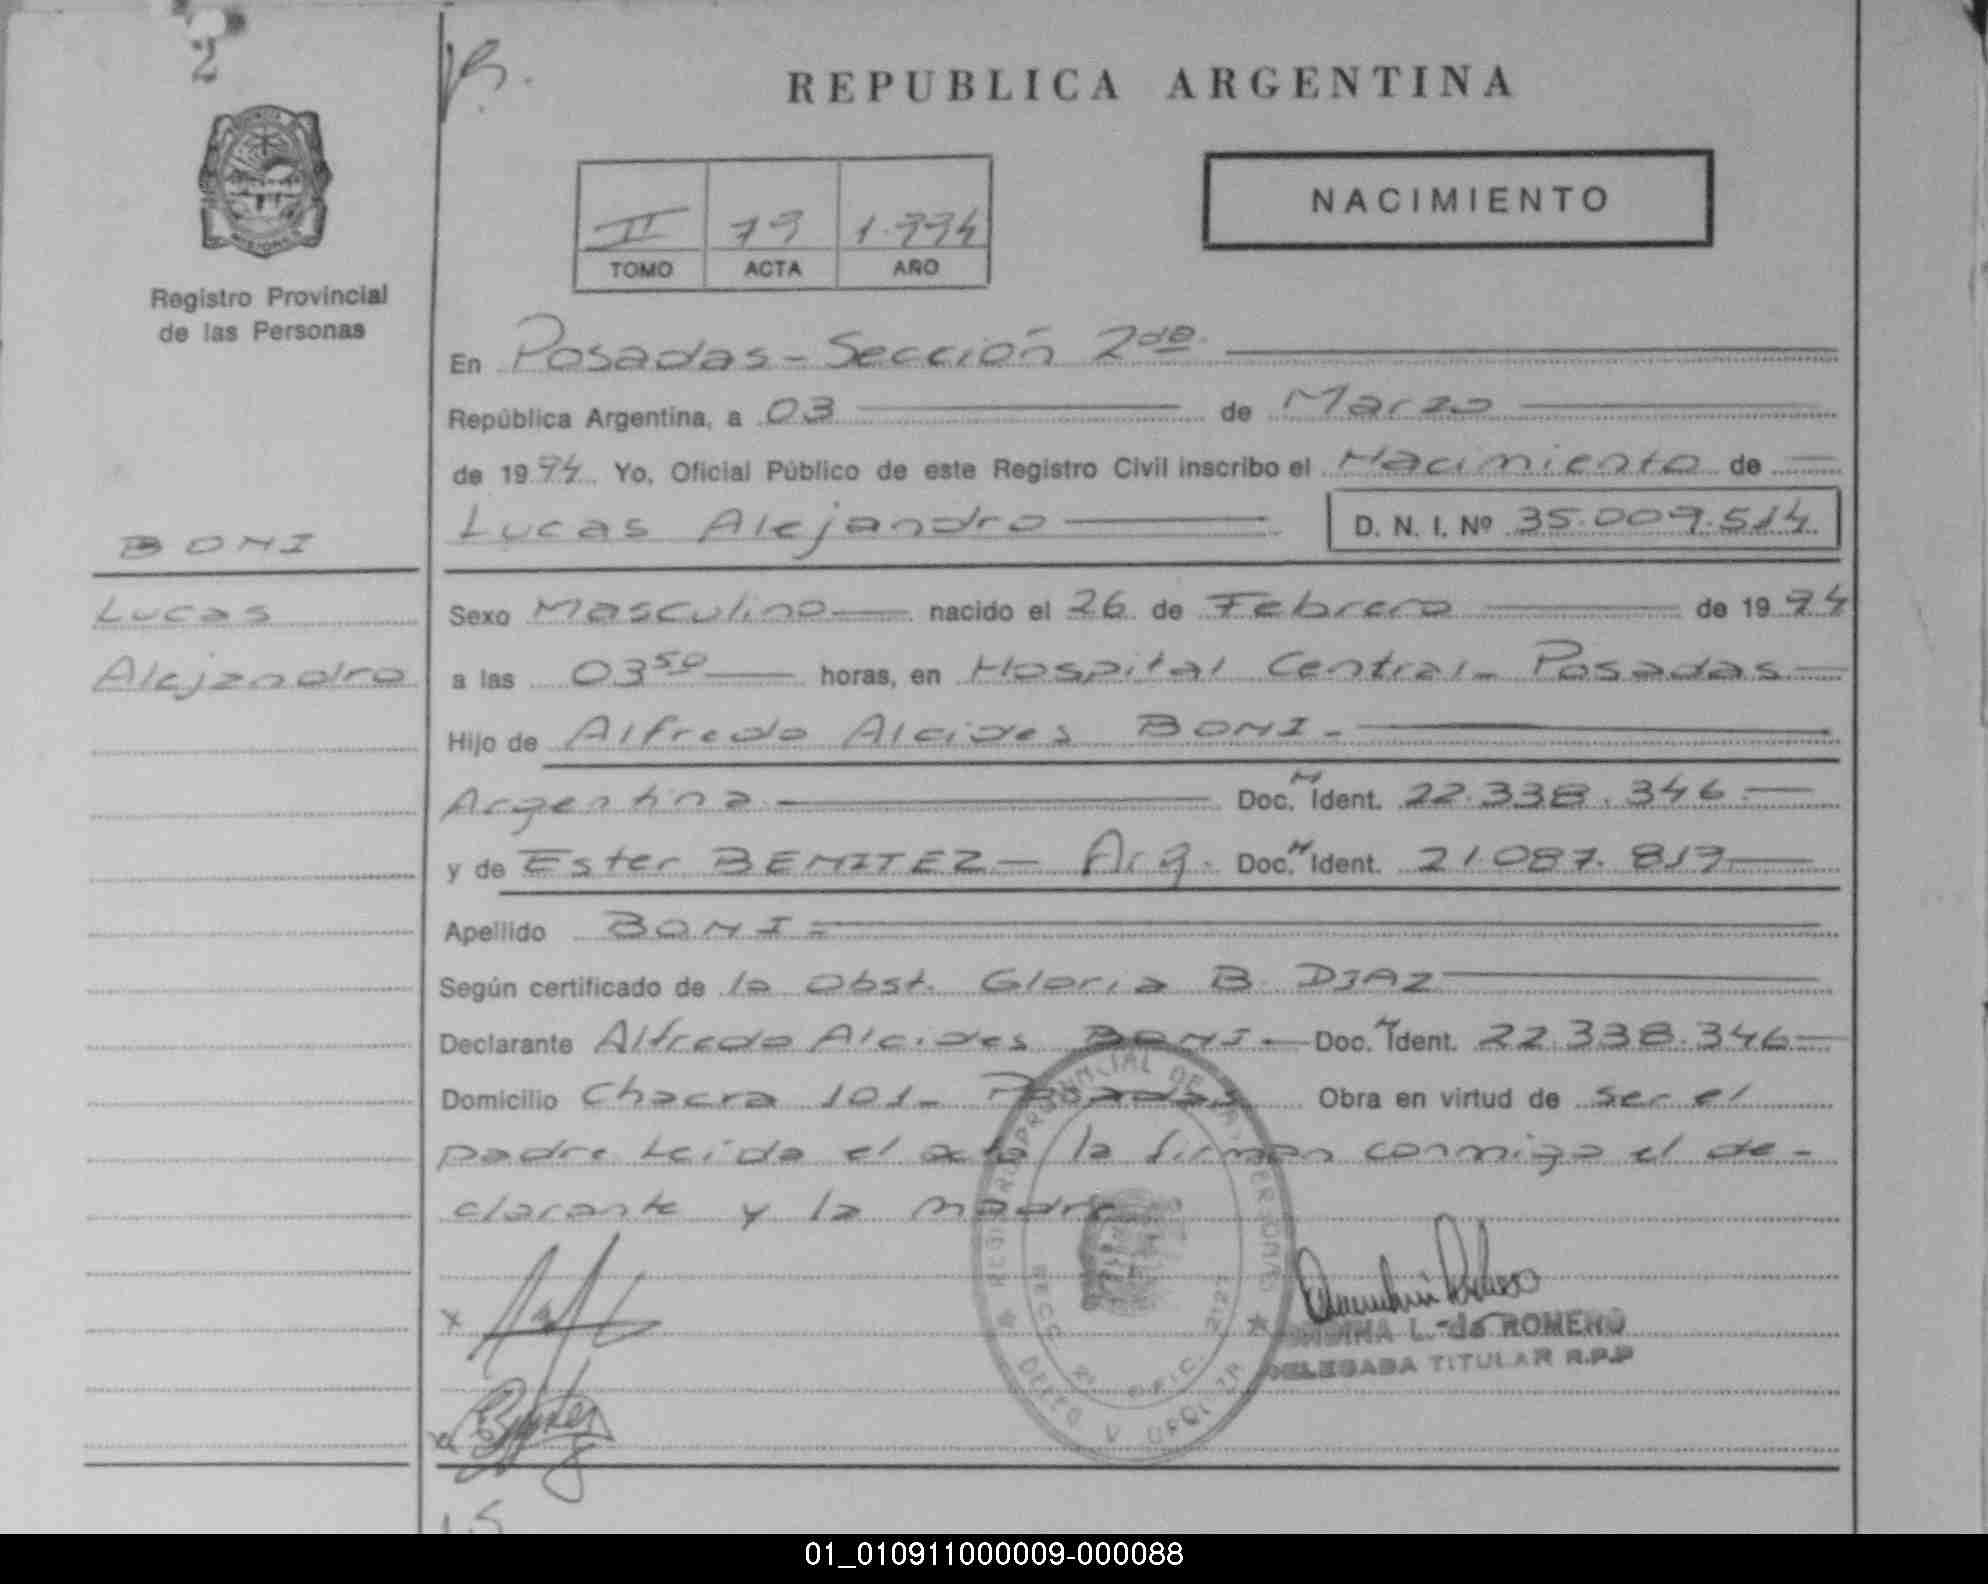 2
REPUBLICA ARGENTINA
NACIMIENTO
II 79 1.994
TOMO ACTA AÑO
Registro Provincial
de las Personas
En Posadas - Sección 2da.
República Argentina, a 03 de Marzo
de 1994 Yo, Oficial Público de este Registro Civil inscribo el Nacimiento de
Lucas Alejandro D. N. I. Nº 35.009.514
BONI
Lucas
Alejandro
Sexo Masculino nacido el 26 de Febrero de 1994
a las 03 50 horas, en Hospital Central - Posadas
Hijo de Alfredo Alcides BONI -
Argentina Doc. N Ident. 22.338.346.-
y de Ester BENITEZ - Arg. Doc. N Ident. 21.087.817
Apellido BONI =
Según certificado de la Obst. Gloria B. DIAZ
Declarante Alfredo Alcides BONI - Doc. N Ident. 22.338.346
Domicilio Chacra 101 - Posadas Obra en virtud de ser el
padre Leida el acta la firman conmigo el de-
clarante y la madre
REGISTRO PROVINCIAL DE LAS PERSONAS
L. de ROMERO
DELEGADA TITULAR R.P.P
15
01_010911000009-000088